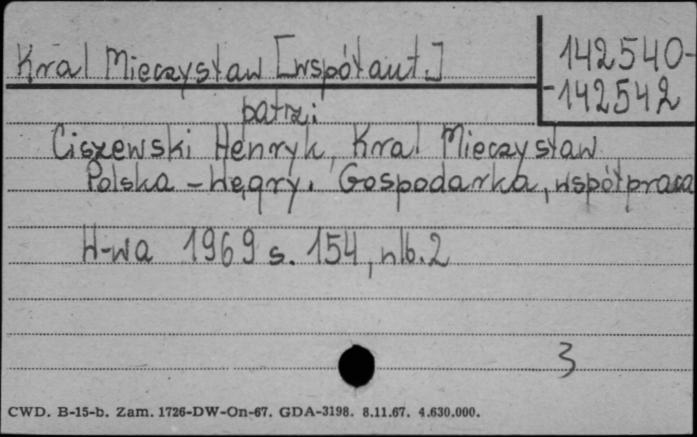 Kral Mieczysław [współaut.]
142540-
-142542
patrz:
Ciszewski Henryk, Kral Mieczysław
Polska - Węgry. Gospodarka, współpraca
W-wa 1969 s. 154, nlb. 2
3
CWD. B-15-b. Zam. 1726-DW-On-67. GDA-3198. 8.11.67. 4.630.000.